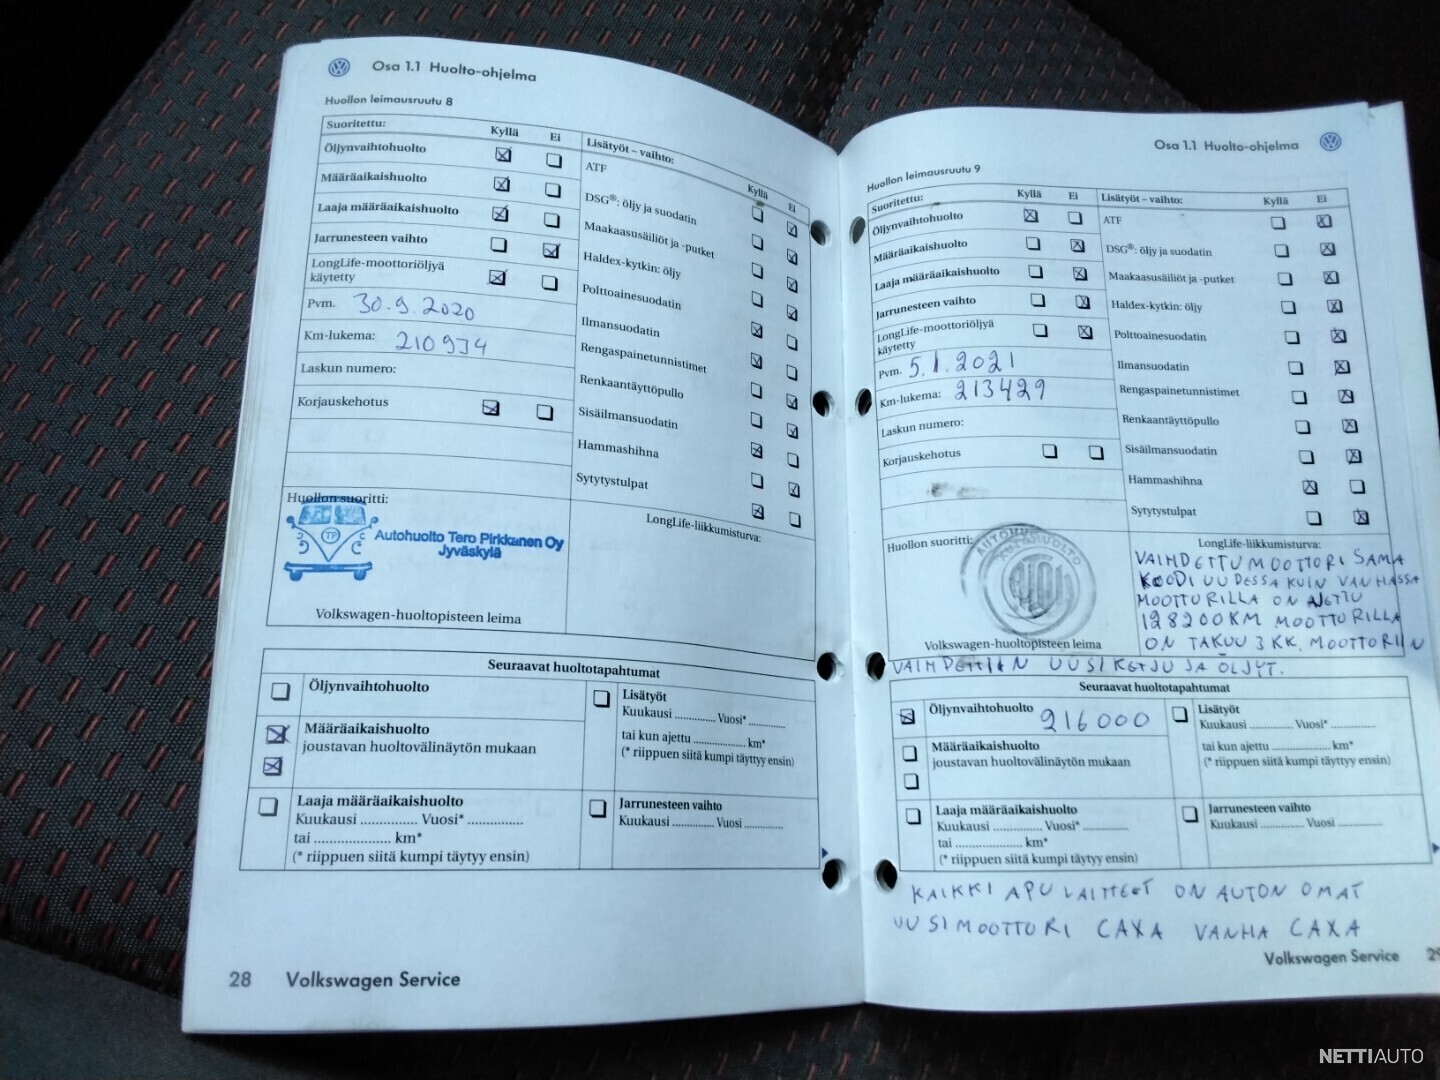 Osa 1.1 Huolto-ohjelma
Huollon leimausruutu 8
Suoritettu: Kyllä Ei
Öljynvaihtohuolto
Määräaikaishuolto
Laaja määräaikaishuolto
Jarrunesteen vaihto
LongLife-moottoriöljyä
käytetty
Pvm. 30.9.2020
Km-lukema: 210934
Laskun numero:
Korjauskehotus
Lisätyöt – vaihto: Kyllä Ei
ATF
DSG®: öljy ja suodatin
Maakaasusäiliöt ja -putket
Haldex-kytkin: öljy
Polttoainesuodatin
Ilmansuodatin
Rengaspainetunnistimet
Renkaantäyttöpullo
Sisäilmansuodatin
Hammashihna
Sytytystulpat
Huollon suoritti:
TP
Autohuolto Tero Pirkkanen Oy
Jyväskylä
Volkswagen-huoltopisteen leima
LongLife-liikkumisturva:
Seuraavat huoltotapahtumat
Öljynvaihtohuolto
Määräaikaishuolto
joustavan huoltovälinäytön mukaan
Laaja määräaikaishuolto
Kuukausi .............. Vuosi* ..............
tai .................... km*
(* riippuen siitä kumpi täytyy ensin)
Lisätyöt
Kuukausi .............. Vuosi* ............
tai kun ajettu .................. km*
(* riippuen siitä kumpi täyttyy ensin)
Jarrunesteen vaihto
Kuukausi .............. Vuosi ..............
28 Volkswagen Service
Osa 1.1 Huolto-ohjelma
Huollon leimausruutu 9
Suoritettu: Kyllä Ei
Öljynvaihtohuolto
Määräaikaishuolto
Laaja määräaikaishuolto
Jarrunesteen vaihto
LongLife-moottoriöljyä
käytetty
Pvm. 5.1.2021
Km-lukema: 213429
Laskun numero:
Korjauskehotus
Lisätyöt – vaihto: Kyllä Ei
ATF
DSG®: öljy ja suodatin
Maakaasusäiliöt ja -putket
Haldex-kytkin: öljy
Polttoainesuodatin
Ilmansuodatin
Rengaspainetunnistimet
Renkaantäyttöpullo
Sisäilmansuodatin
Hammashihna
Sytytystulpat
Huollon suoritti:
Volkswagen-huoltopisteen leima
LongLife-liikkumisturva:
VAIHDETTU MOOTTORI SAMA
KOODI UUDESSA KUIN VANHASSA
MOOTTORILLA ON AJETTU
128200KM MOOTTORILLA
ON TAKUU 3 KK. MOOTTORIIN
VAIHDETTIIN UUSI KETJU JA ÖLJYT.
Seuraavat huoltotapahtumat
Öljynvaihtohuolto 216000
Määräaikaishuolto
joustavan huoltovälinäytön mukaan
Laaja määräaikaishuolto
Kuukausi .............. Vuosi* ..............
tai .................... km*
(* riippuen siitä kumpi täytyy ensin)
Lisätyöt
Kuukausi .............. Vuosi* ............
tai kun ajettu .................. km*
(* riippuen siitä kumpi täyttyy ensin)
Jarrunesteen vaihto
Kuukausi .............. Vuosi ..............
KAIKKI APULAITTEET ON AUTON OMAT
UUSI MOOTTORI CAXA VANHA CAXA
Volkswagen Service 29
NETTIAUTO